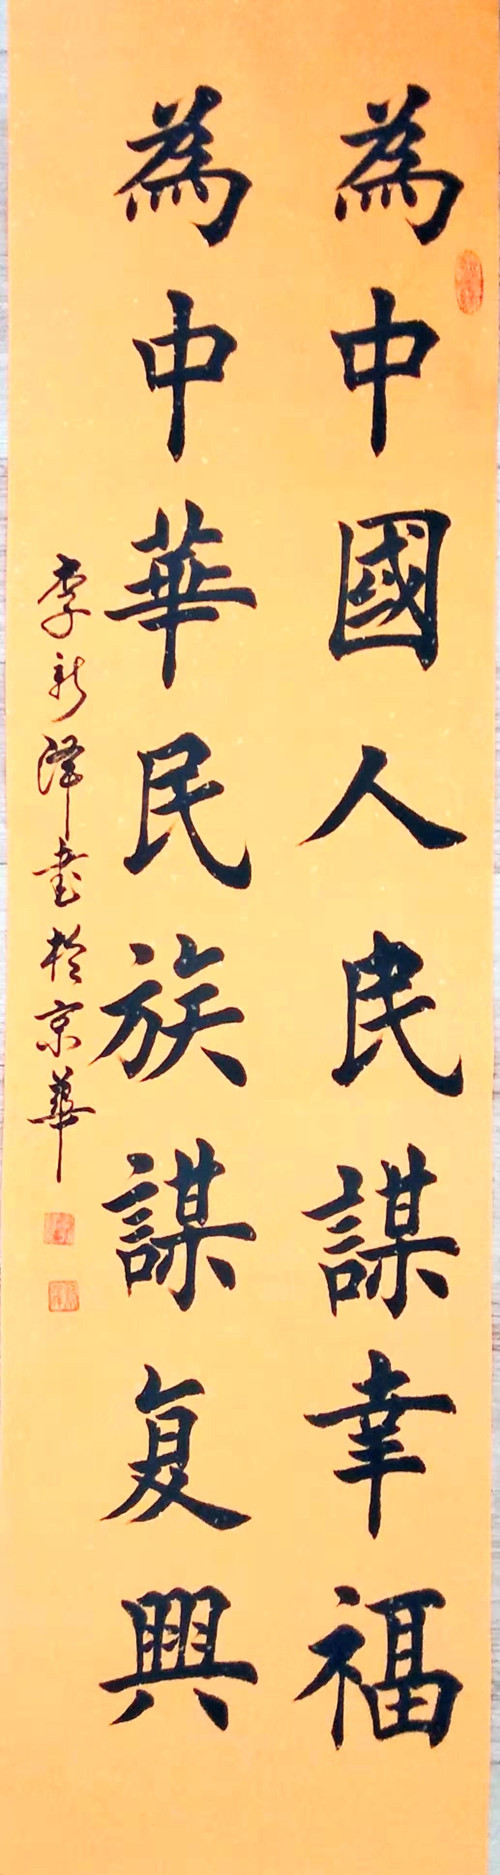 為中國人民謀幸福
為中華民族謀复興
李新泽書於京華